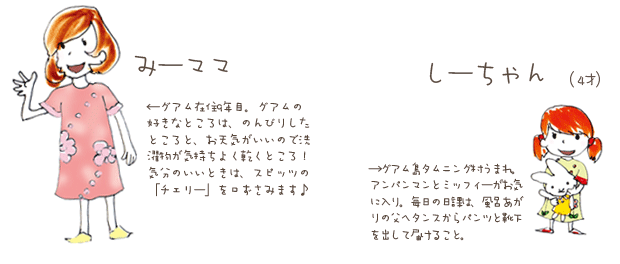 みーママ
←グアム在住9年目。グアムの
好きなところは、のんびりした
ところと、お天気がいいので洗
濯物が気持ちよく乾くところ!
気分のいいときは、スピッツの
「チェリー」を口ずさみます♪
しーちゃん (4才)
→グアム島タムニング村うまれ。
アンパンマンとミッフィーがお気
に入り。毎日の日課は、風呂あが
りの父へタンスからパンツと靴下
を出して届けること。